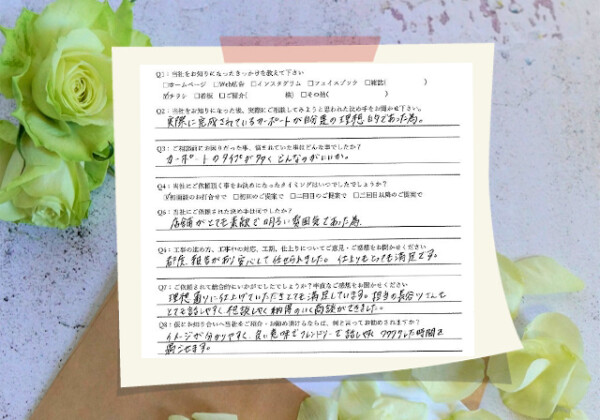 Q1：当社をお知りになったきっかけを教えて下さい
□ホームページ　□Web広告　□インスタグラム　□フェイスブック　□雑誌(　　　)
☑チラシ　□看板　□ご紹介(　　　様)　□その他(　　　)
Q2：当社をお知りになった後、実際にご相談してみようと思われた決め手をお聞かせ下さい。
実際に完成されているカーポートが理想的であった為。
Q3：ご相談前にお困りだった事、悩まれていた事はどんな事でしたか？
カーポートのタイプが多く どんなのがいいか。
Q4：当社にご依頼頂く事をお決めになったタイミングはいつでしたでしょうか？
☑初面談のお打合せで　□初回のご提案で　□二回目のご提案で　□三回目以降のご提案で
Q5：当社にご依頼された決め手は何でしたか？
店舗がとても素敵で明るい雰囲気であった為.
Q6：工事の進め方、工事中の対応、工期、仕上りについてご意見・ご感想をお聞かせください
都度 報告があり安心して任せられました。仕上りもとっても満足です。
Q7：ご依頼されて総合的にいかがでしたでしょうか？率直なご感想をお聞かせください
理想通りに仕上げていただきとても満足しています。担当の長谷川さんも
とても話しやすく 相談しやすく納得のいく商談ができました。
Q8：仮にお知り合いへ当社をご紹介・お勧め頂けるならば、何と言ってお勧めされますか？
イメージが分かりやすく、良い意味でフレンドリーで話しやすく ワクワクした時間を
過ごせます。